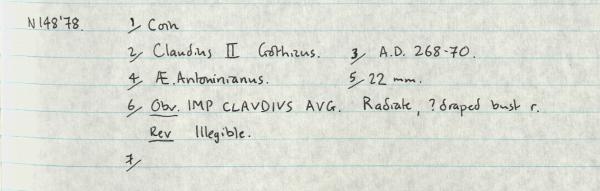 N148'78. 1/ Coin
2/ Claudius II Gothicus. 3/ A.D. 268-70.
4/ Æ. Antoninianus. 5/ 22 mm.
6/ Obv. IMP CLAVDIVS AVG. Radiate, ? draped bust r.
Rev Illegible.
7/